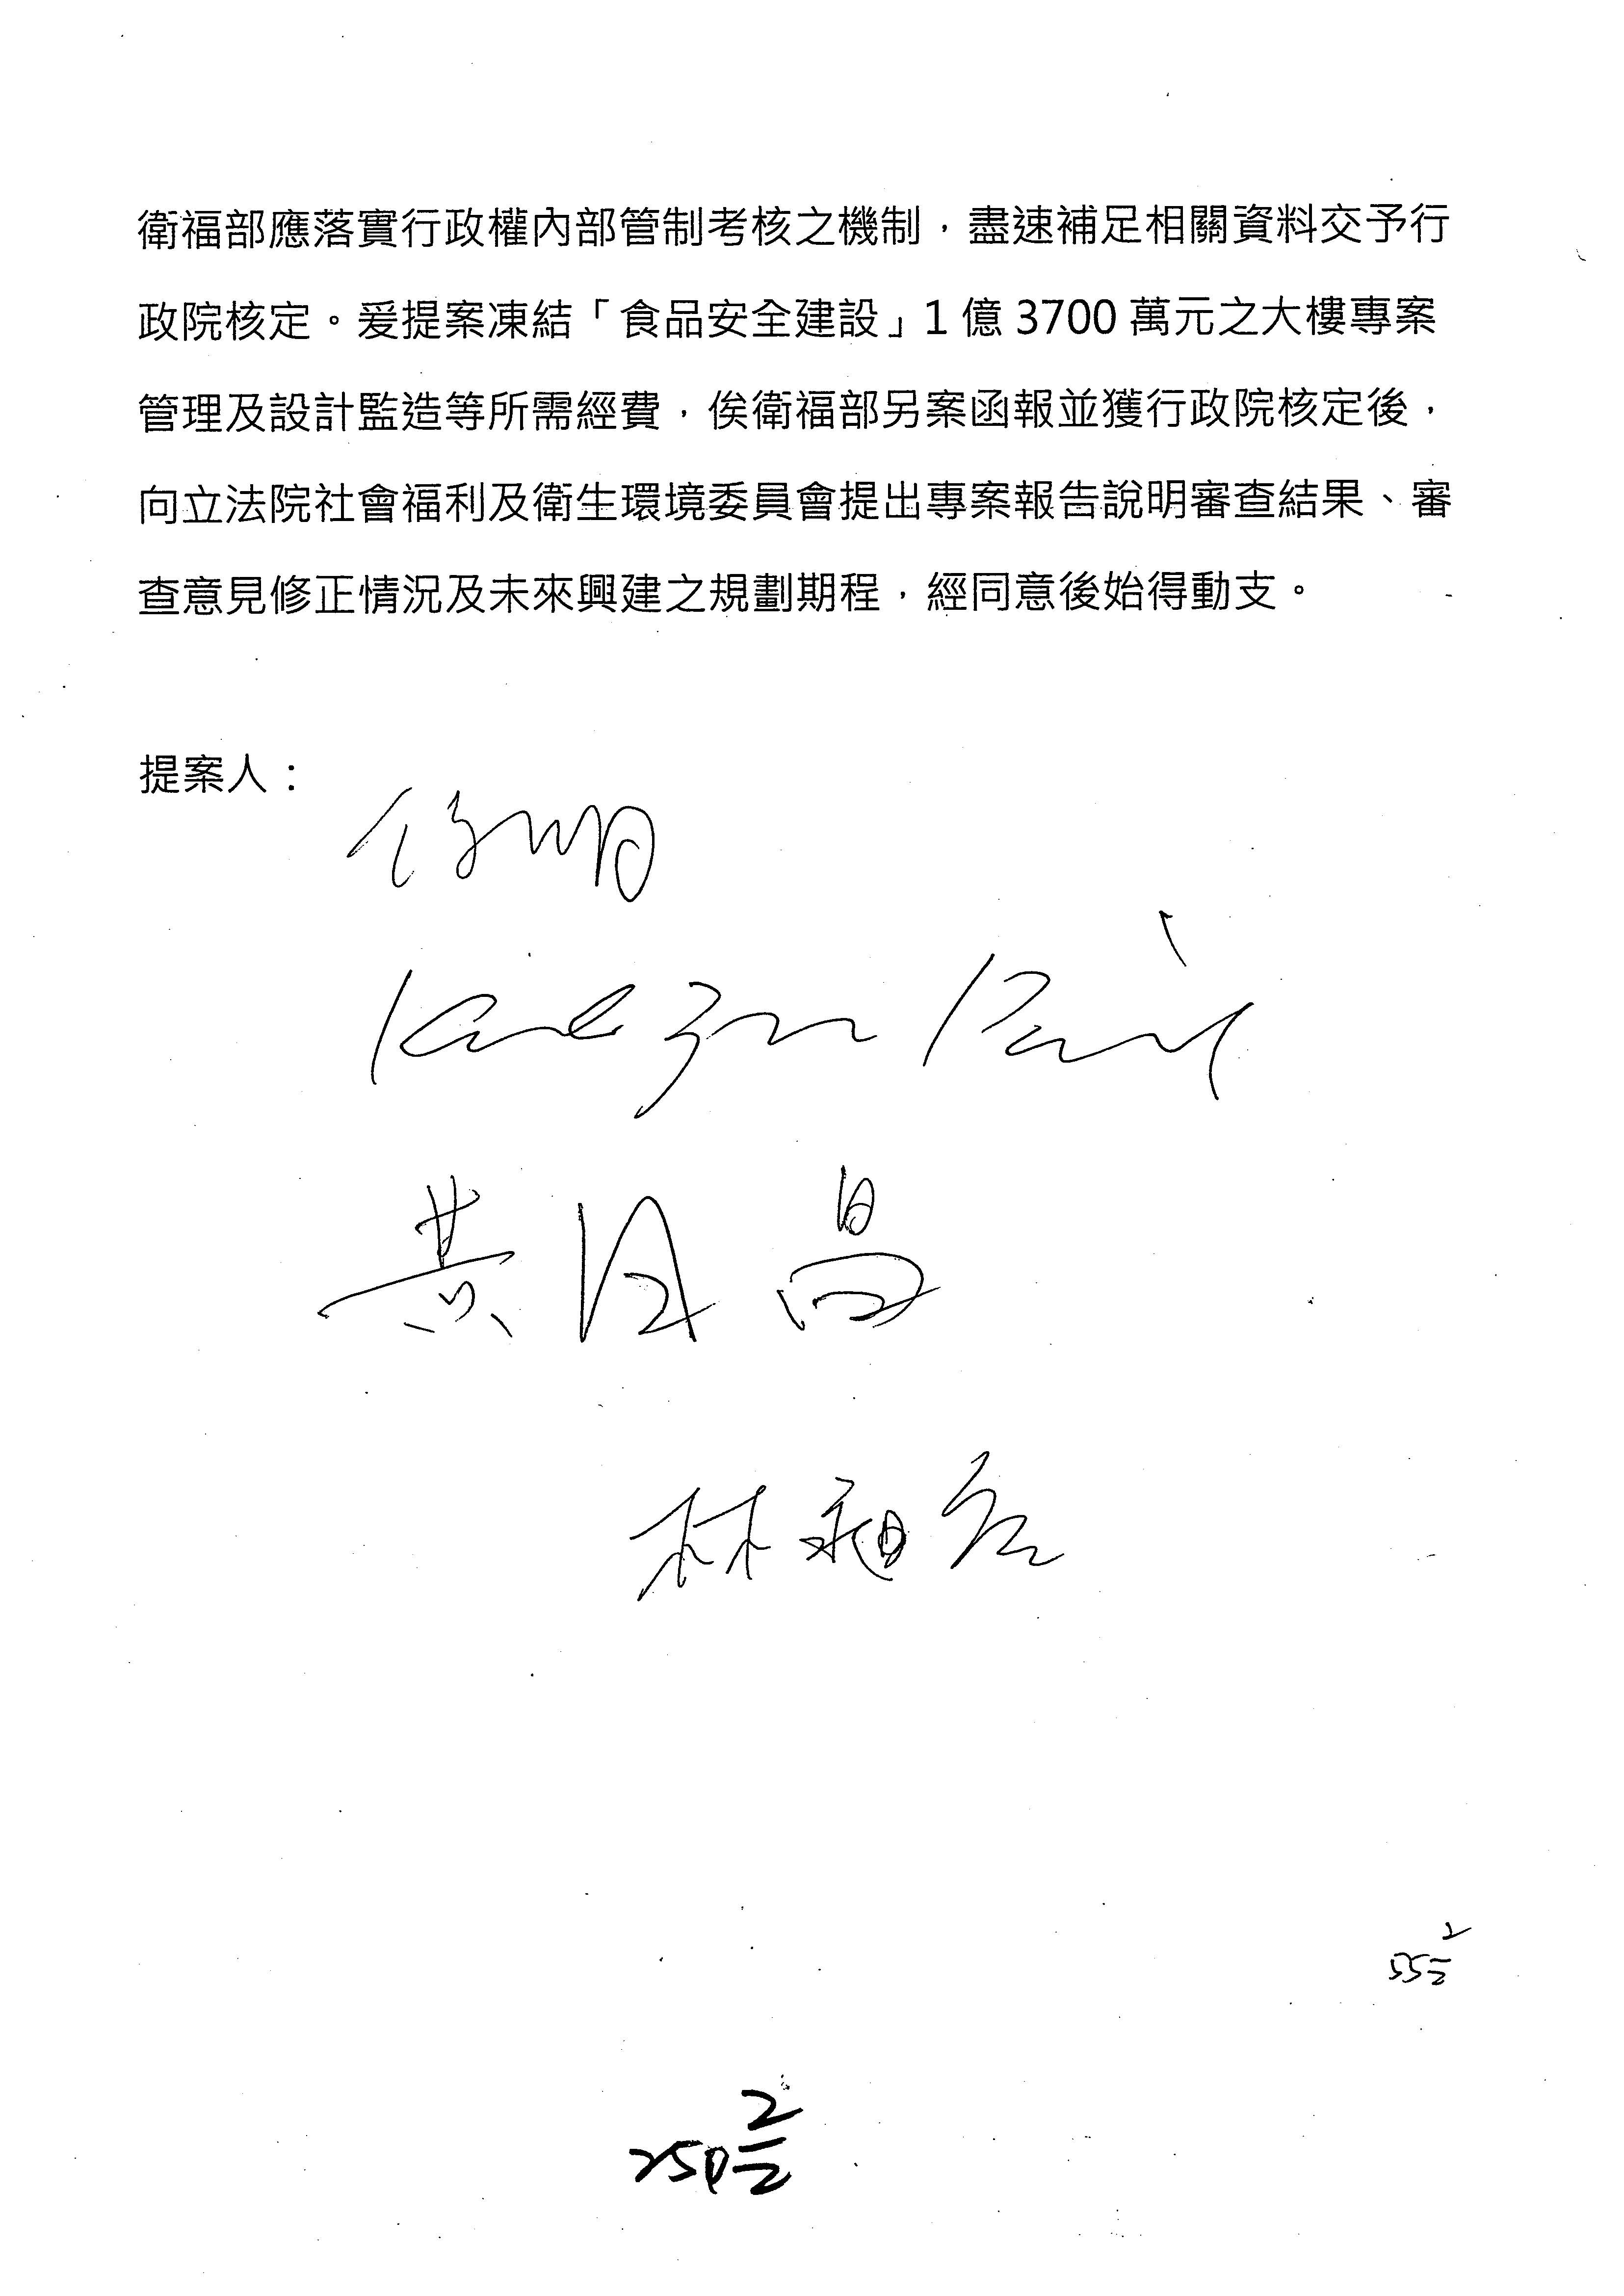 衛福部應落實行政權內部管制考核之機制，盡速補足相關資料交予行
政院核定。爰提案凍結「食品安全建設」1 億 3700 萬元之大樓專案
管理及設計監造等所需經費，俟衛福部另案函報並獲行政院核定後，
向立法院社會福利及衛生環境委員會提出專案報告說明審查結果、審
查意見修正情況及未來興建之規劃期程，經同意後始得動支。
提案人：
黃國昌
林昶佐
2
55二
2
250二